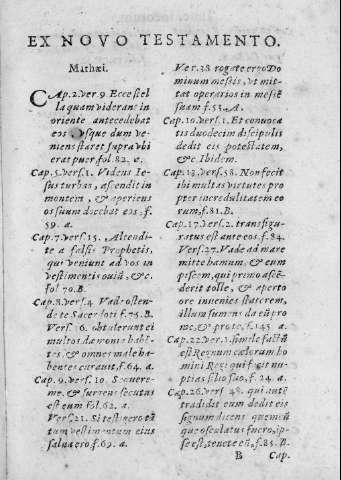 EX NOVO TESTAMENTO.
Mathæi.
CAp.2.ver.9. Ecce stel
la quam viderant in
oriente antecedebat
eos, vsque dum ve-
niens staret supra vbi
erat puer fol.82. c.
Cap.5.vers.1. Videns Ie-
sus turbas, ascendit in
montem, & aperiens
os suum docebat eos, f.
59. a.
Cap.7.vers.15. Attendi-
te a falsis Prophetis,
qui veniunt ad vos in
vestimentis ouiũ, &c.
fol 79.B.
Cap.8.vers.4. Vade osten-
de te Sacerdoti f.75.B.
Vers. 16. obtulerunt ei
multos dæmonia habẽ-
tes, & omnes male ha-
bentes curauit, f.64. a.
Cap. 9. vers. 10. Sequere-
me, & surrens secutus
est eum fol.62. a.
Vers.21. Si tetigero tã
tum vestimentum eius
salua ero f.69. a.
Ver.38. rogate ergo Do
minum messis, vt mit-
tat operarios in messẽ
suam f.53.A.
Cap.10.vers.1. Et conuoca
tis duodecim discipulis
dedit eis potestatem,
&c. Ibidem.
Cap.13.vers.58. Non fecit
ibi multas virtutes pro
pter incredulitatem eo
rum, f.81.B.
Cap.17.vers.2. transfigu-
ratus est ante eos f.84.
Vers.27. Vade ad mare
mitte hamum, & eum
piscem, qui primo ascẽ
derit tolle, & aperto
ore inuenies staterem,
illum sumens da eis pro
me, & pro te, f.143. a.
Cap.22.ver.2. simile factũ
est Regnum cælorum ho
mini Regi qui fecit nu-
ptias filio suo, f. 24. a.
Cap.26.vers 48. qui autẽ
tradidit eum dedit eis
signum dicens quemcũ
que osculatus fuero, ip-
se est, tenete eũ, f.85.B.
B Cap.